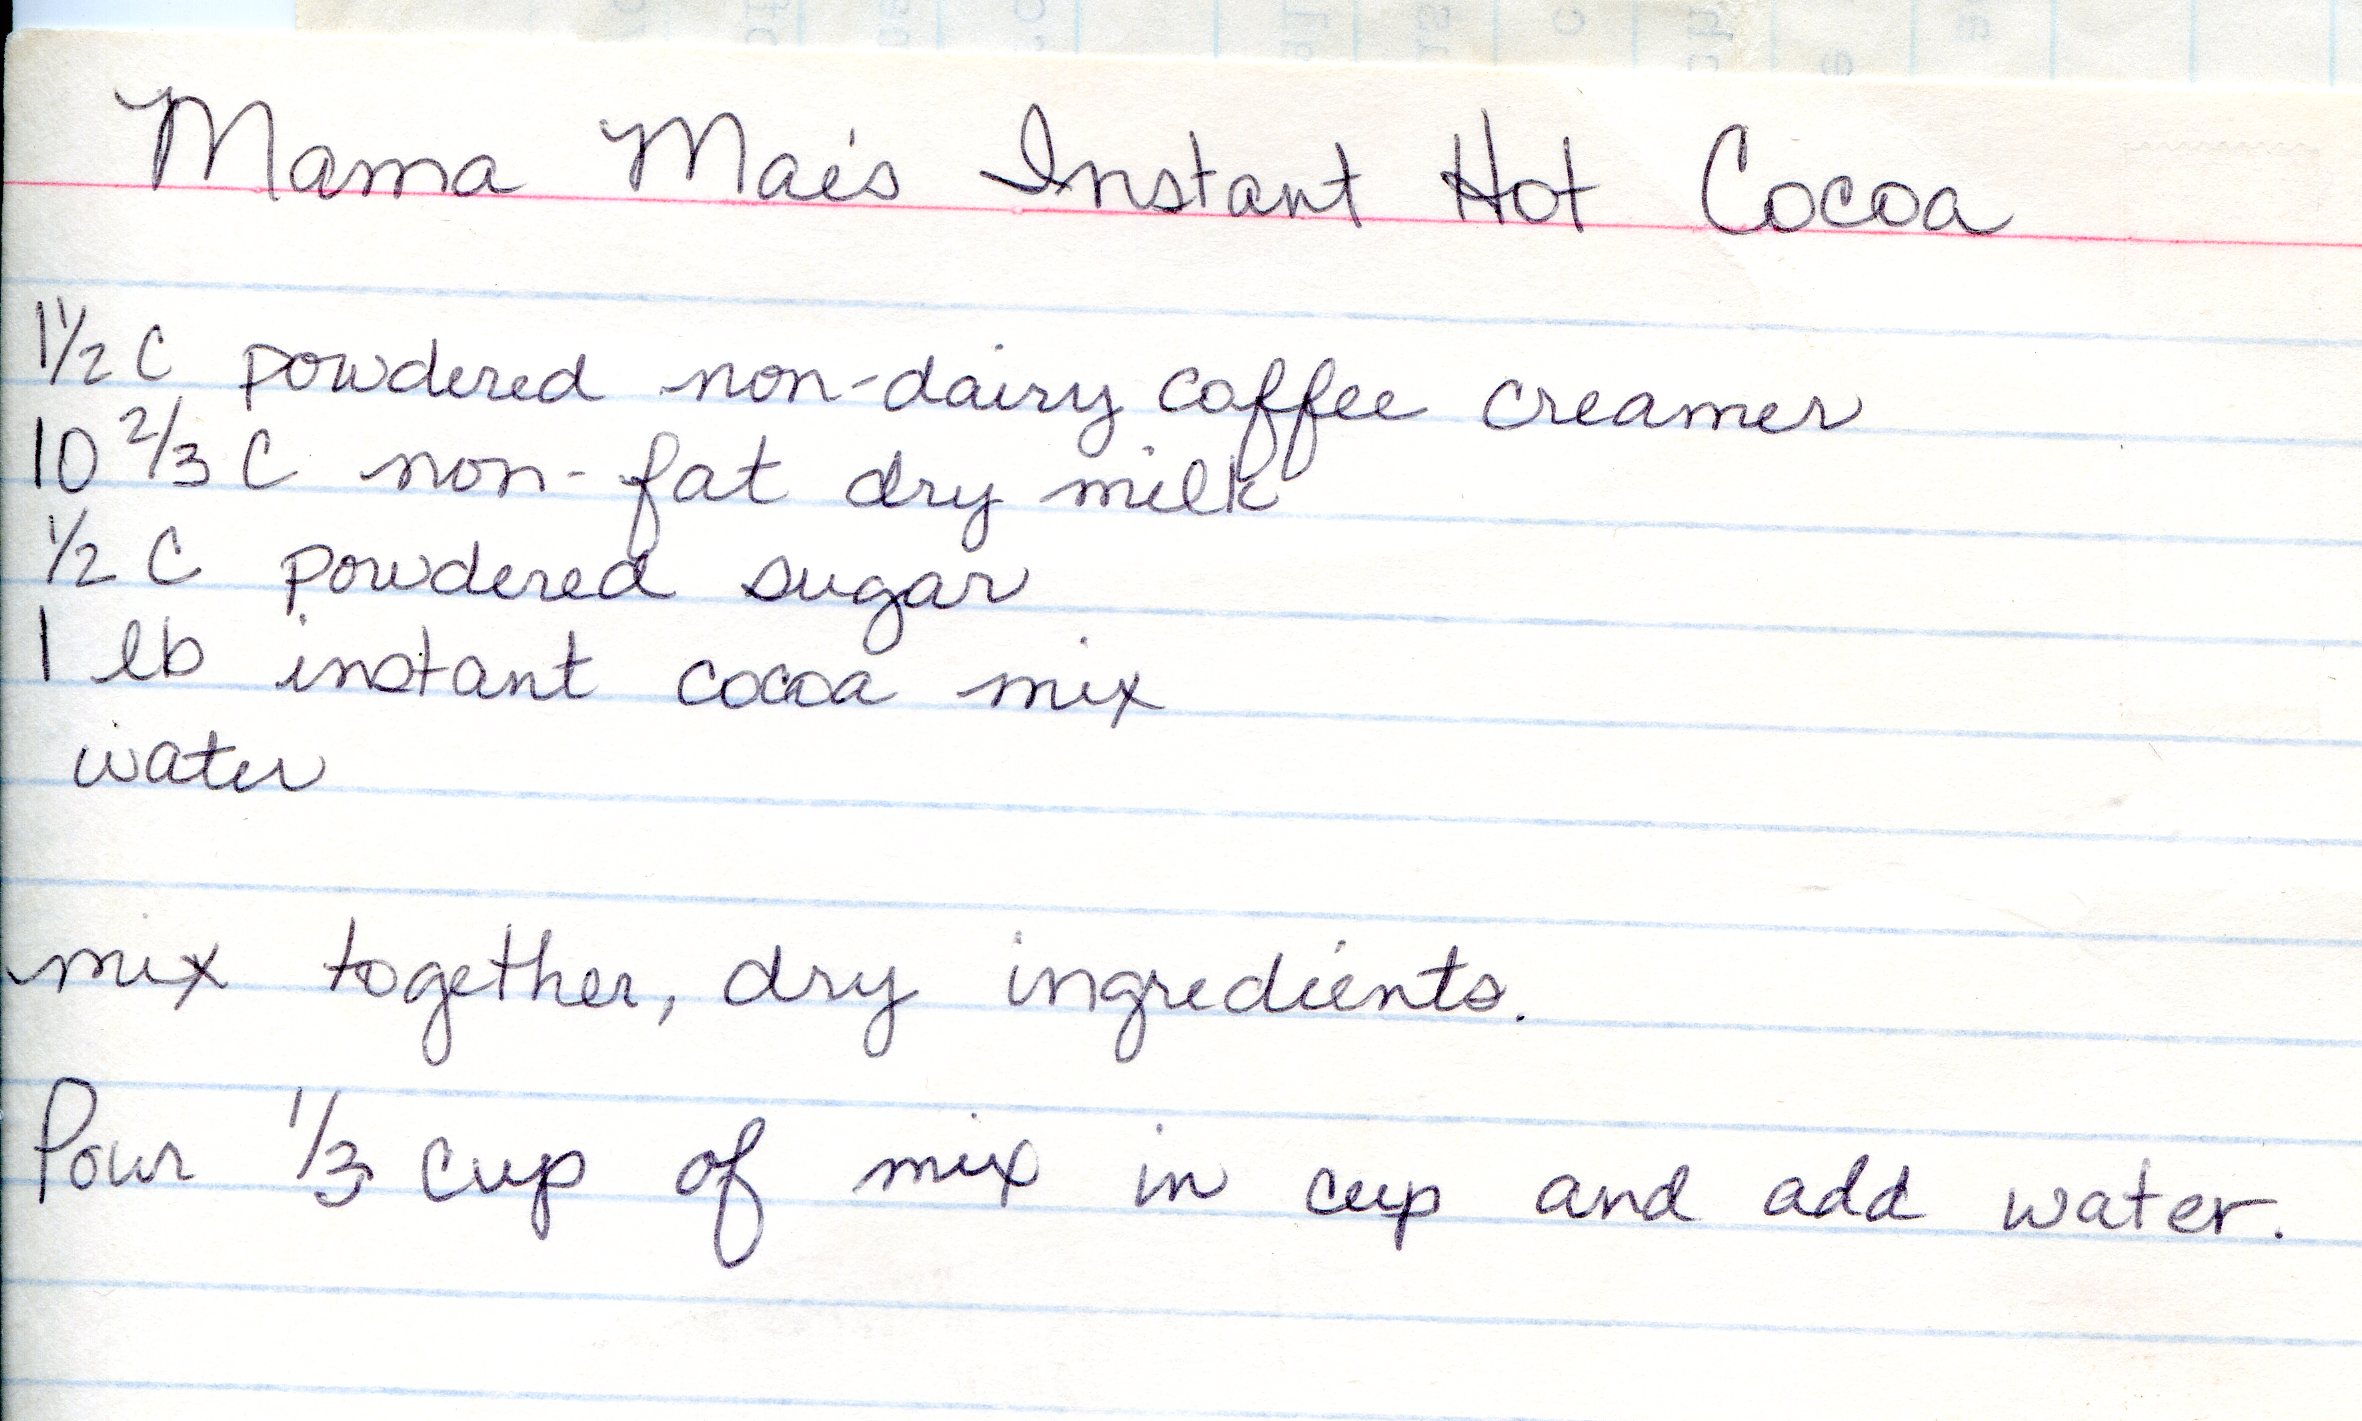 Mama Mae's Instant Hot Cocoa
1 1/2 C powdered non-dairy coffee creamer
10 2/3 C non-fat dry milk
1/2 C powdered sugar
1 lb instant cocoa mix
water
mix together, dry ingredients.
Pour 1/3 cup of mix in cup and add water.